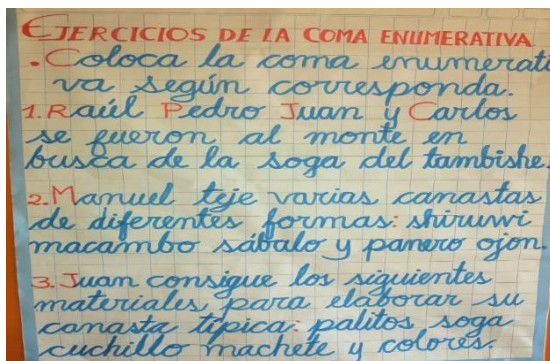 EJERCICIOS DE LA COMA ENUMERATIVA
. Coloca la coma enumerati
va según corresponda.
1. Raúl Pedro Juan y Carlos
se fueron al monte en
busca de la soga del tambishe.
2. Manuel teje varias canastas
de diferentes formas: shiruwi
macambo sábalo y panero ojon.
3. Juan consigue los siguientes
materiales para elaborar su
canasta típica: palitos soga
cuchillo machete y colores.